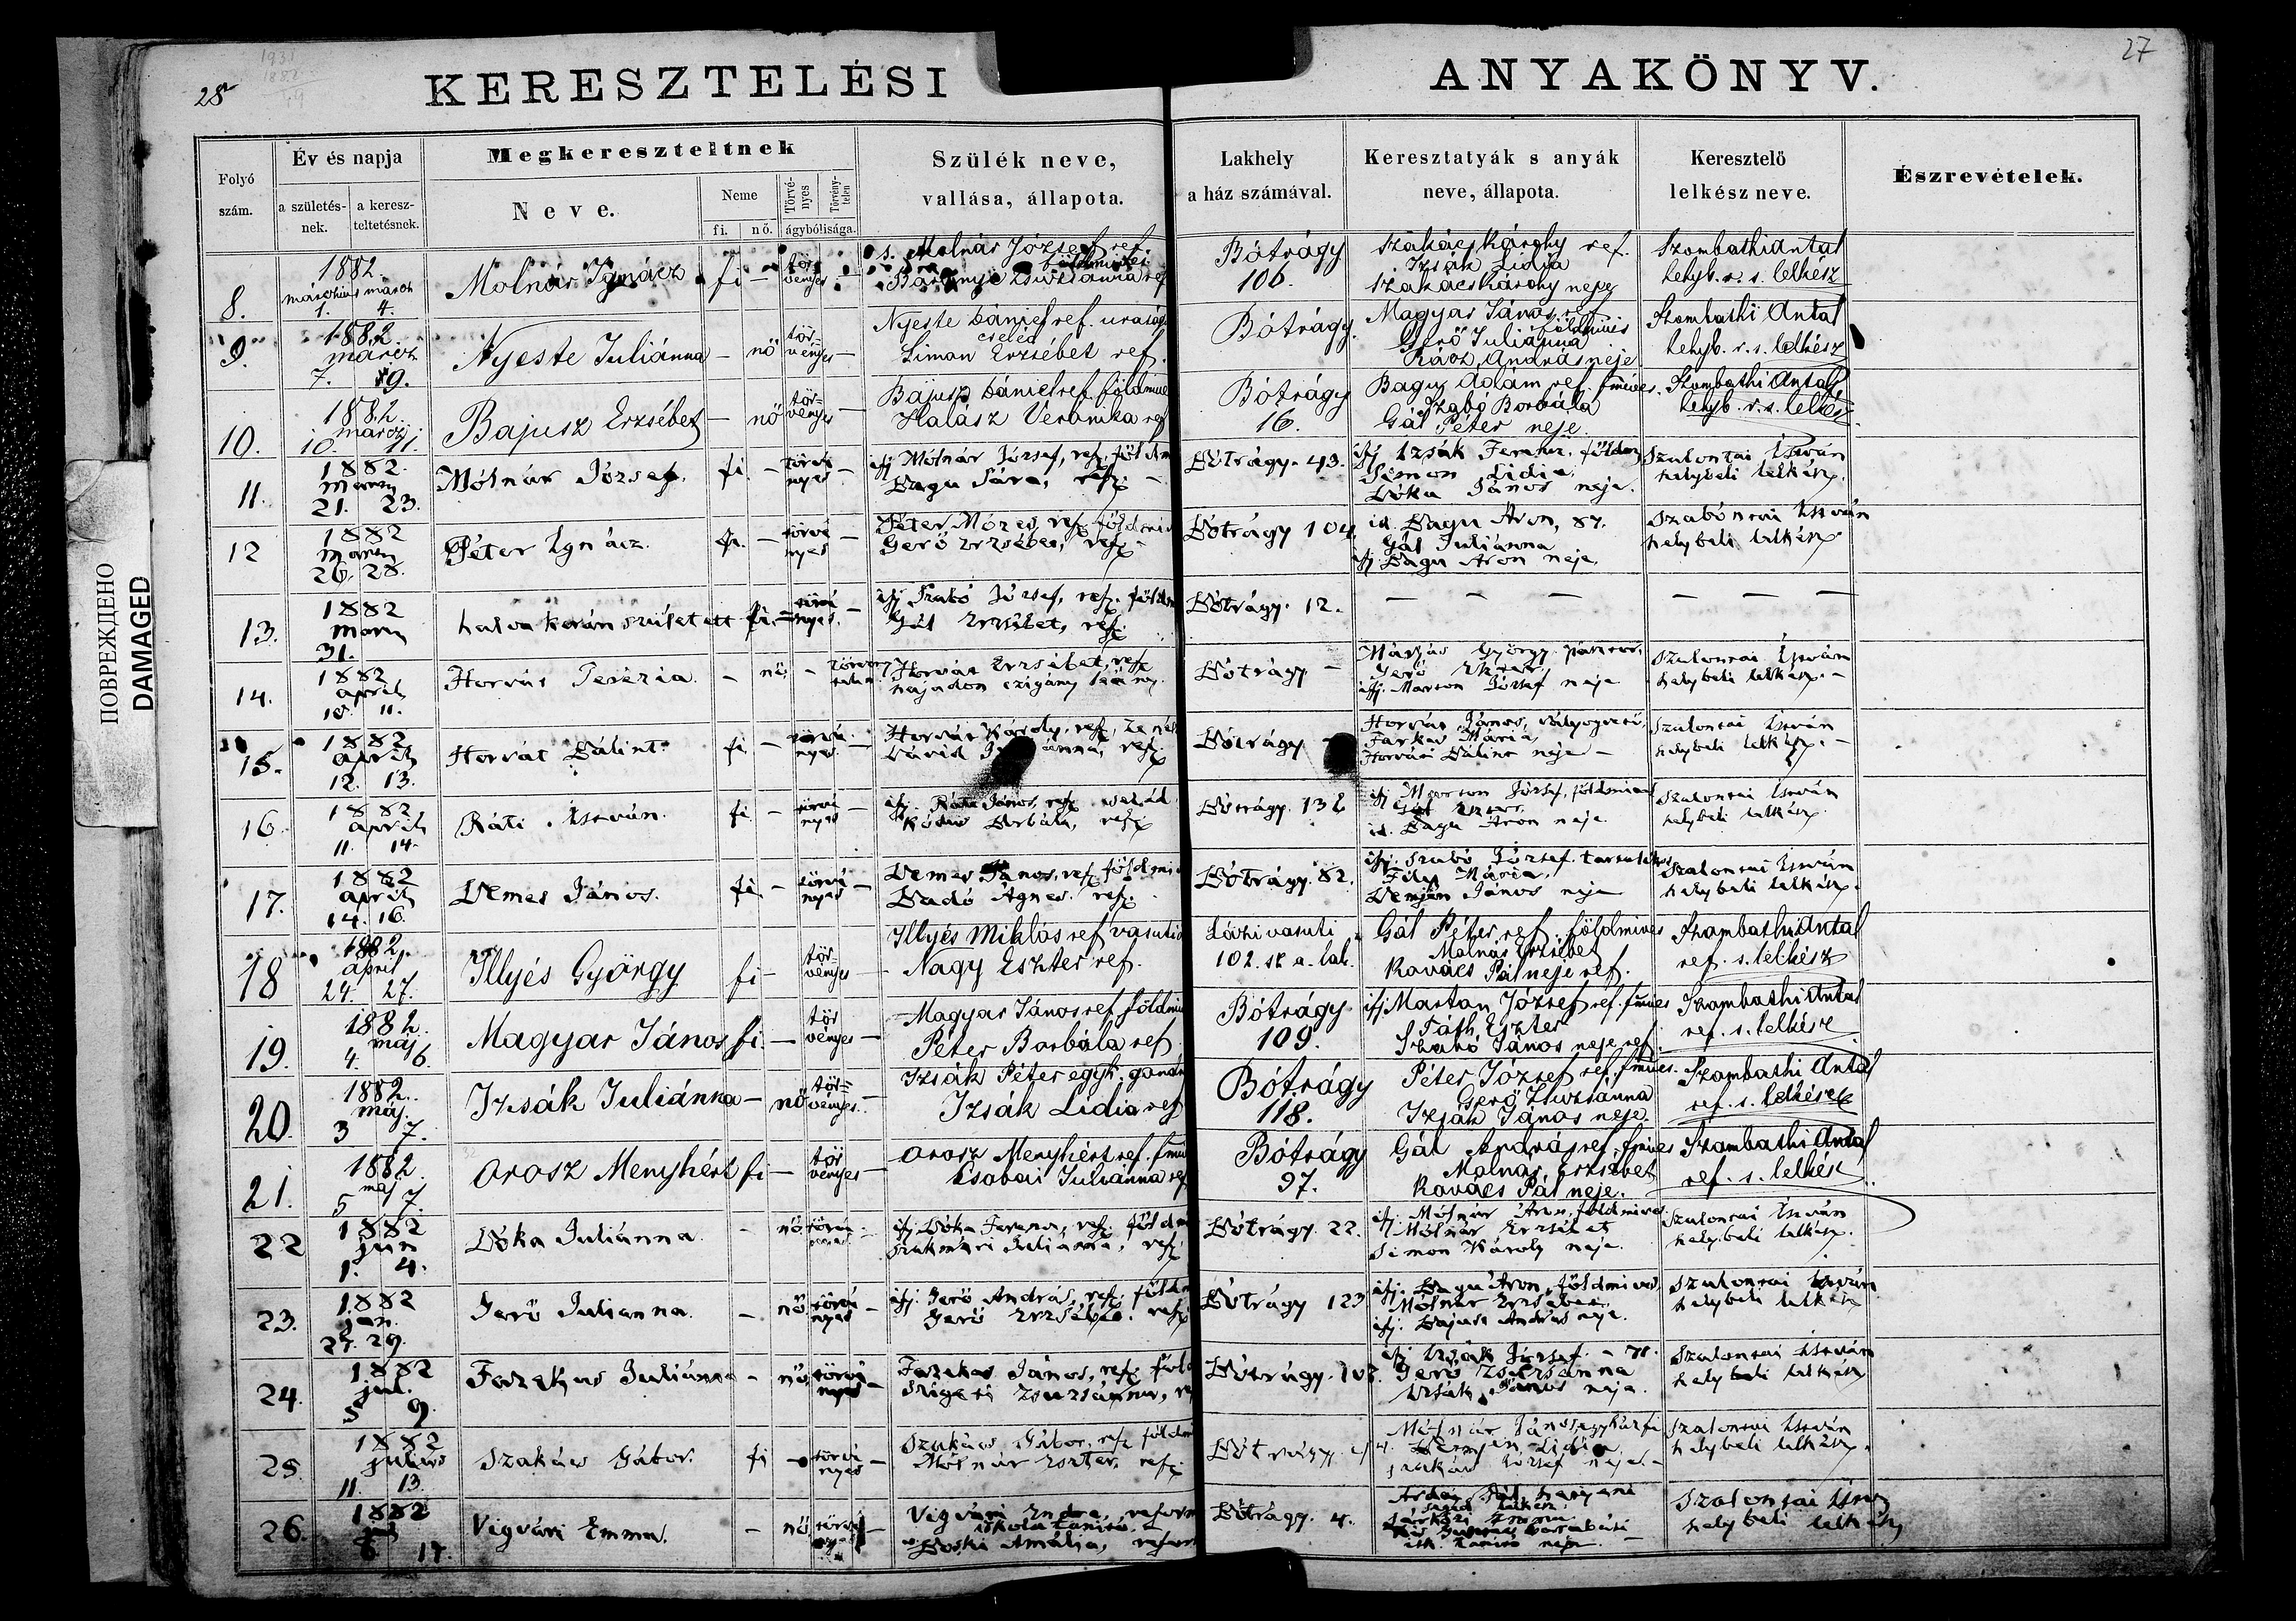 28
1931
1882
49
27
KERESZTELÉSI ANYAKÖNYV.
ПОВРЕЖДЕНО
DAMAGED
Folyó szám.
Év és napja
a születésnek.
a kereszteltetésnek.
Megkereszteltnek
Neve.
Neme
fi.
nő.
Törvényes
Törvénytelen
ágybólisága.
Szülék neve,
vallása, állapota.
Lakhely
a ház számával.
Keresztatyák s anyák
neve, állapota.
Keresztelő
lelkész neve.
Észrevételek.
8.
1882.
márczius márcz
1. 4.
Molnár Ignácz
fi –
törvényes –
s. Molnár József ref.
földmives
Zsuzsánna ref
Bótrágy
106.
Szakács Károly ref.
Izsák Lidia
Szakács Károly neje
Szombathi Antal
helyb. r. s. lelkész
9.
1882
márcz
7. 9.
Nyeste Juliánna
– nő
törvényes –
Nyeste Dániel ref. urasági
cseléd
Simon Erzsébet ref.
Bótrágy
Magyar János ref
földmives
Gerő Juliánna
Rácz András neje
Szombathi Antal
helyb. r. s. lelkész
10.
1882.
márcz
10. 11.
Bajusz Erzsébet
– nő
törvényes –
Bajusz Dániel ref. földmive
Halász Veronika ref
Bótrágy
16.
Bagu Ádám ref. fmives.
Szabó Borbála
Gál Péter neje.
Szombathi Antal
helyb. r. s. lelkész
11.
1882.
marcz
21. 23.
Mólnár József.
fi. –
törvényes –
ifj Mólnár József, ref. földm
Bagu Sára, ref. –
Bótrágy. 43.
ifj Izsák Ferencz. földm
Simon Lidia.
Bóka János neje.
Szalontai István
helybeli lelkész.
12
1882
marcz
26. 28.
Péter Ignácz.
fi. –
törvényes –
Péter Mózes, ref. földmiv
Gerő Erzsébet, ref.
Bótrágy 104
id. Bagu Áron,
Gál Juliánna
ifj. Bagu Áron neje.
István
helybeli lelkész
13.
1882
marcz
31.
halva korán született
fi. –
törvényes. –
ifj Szabó József, ref. földm
Gál Erzsébet, ref.
Bótrágy. 12.
– – – –
– – –
14.
1882
april
10. 11.
Horvát Terézia.
– nő –
törvénytelen.
Horvát Erzsébet, ref
hajadon czigány leány.
Bótrágy –
György. pásztor,
Gerő Eszter,
ifj. Marton József neje
Szalontai István
helybeli lelkész. –
15.
1882
april
12. 13.
Horvát Bálint.
fi. –
törvényes –
Horvát Károly, ref, zenés
Dávid ánna, ref.
Bótrágy –
Horvát János, vályogvető,
Farkas Mária,
Horvát Bálint neje –
Szalontai István
helybeli lelkész. –
16.
1882
april
11. 14.
Ráti István.
fi. –
törvényes –
ifj. Ráti János, ref. cseléd
Borbála, ref.
Bótrágy. 132
ifj Marton József, földmives
Gál Eszter.
id. Bagu Áron neje.
Szalontai István
helybeli lelkész.
17.
1882
april
14. 16.
Demes János.
fi. –
törvényes –
Demes János, ref. földmi
Badó Ágnes. ref.
Bótrágy. 82.
ifj. Szabó József.
Mária,
János neje
Szalontai István
helybeli lelkész.
18
1882.
april
24. 27.
Illyés György
fi –
törvényes –
Illyés Miklós ref vasuti
Nagy Eszter ref.
vasuti
102. sz a. lak.
Gál Péter ref. földmives
Molnár Erzsébet
Kovács Pál neje ref.
Szombathi Antal
ref. s. lelkész
19.
1882.
máj
4. 6.
Magyar János
fi. –
törvényes –
Magyar János ref földmi
Péter Borbála ref
Bótrágy
109.
ifj Martan József ref. fmives
Tóth Eszter
Szabó János neje ref.
Szombathi Antal
ref. s. lelkész
20.
1882.
máj.
3 7.
Izsák Juliánna
– nő
törvényes. –
Izsák Péter egyh. gondn
Izsák Lídia ref
Bótrágy
118.
Péter József ref. fmives.
Gerő Zsuzsánna
Izsák János neje
Szombathi Antal
ref. s. lelkész
21.
1882.
máj
5 7.
Orosz Menyhért
fi –
törvényes –
Orosz Menyhért ref. fmiv
Csobai Juliánna ref
Bótrágy
97.
Gál András ref. fmives
Molnár Erzsébet
Kovács Pál neje.
Szombathi Antal
ref. s. lelkész
22
1882
jun
1. 4.
Bóka Juliánna.
– nő
törvényes –
ifj. Bóka Ferencz, ref. földmi
Szakmári Juliánna, ref
Bótrágy. 22.
ifj. Mólnár Áron, földmives
Mólnár Erzsébet
Simon Károly neje.
Szalontai István
helybeli lelkész.
23.
1882
jun.
27. 29.
Gerő Julianna.
– nő
törvényes –
ifj. Gerő András, ref. földm
Gerő Erzsébet. ref
Bótrágy 123
ifj. Bagu Áron, földmives
Mólnár Erzsébet
ifj. Bajusz András neje.
Szalontai István
helybeli lelkész
24.
1882
jul.
5 9.
Fazekas Juliánna
– nő
törvényes –
Fazekas János, ref. föld
Szigeti Zsuzsánna, re
Bótrágy.
ifj Izsák József.
Gerő Zsuzsánna
Izsák János neje.
Szalontai István
helybeli lelkész
25.
1882
julius
11. 13.
Szakács Gábor.
fi –
törvényes –
Szakács Gábor, ref. földmi
Mólnár Eszter, ref.
Bótrágy.
Mólnár János, egyházfi
Lidia,
Szakács József neje. –
Szalontai István
helybeli lelkész.
26.
1882
17.
Vigvári Emma.
– nő
törvényes –
Vigvári Endre, reform
iskola tanitó.
Amália, reform
Bótrágy. 4.
Pál
Emma
neje
Szalontai István
helybeli lelkész